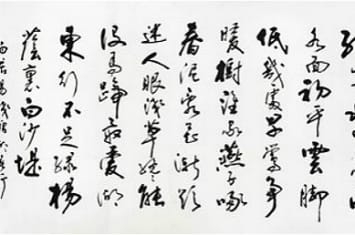 水面初平雲脚
低幾處早鶯爭
暖樹誰家燕子啄
春泥亂花漸欲
迷人眼淺草纔能
沒馬蹄最愛湖
東行不足綠楊
蔭裏白沙堤